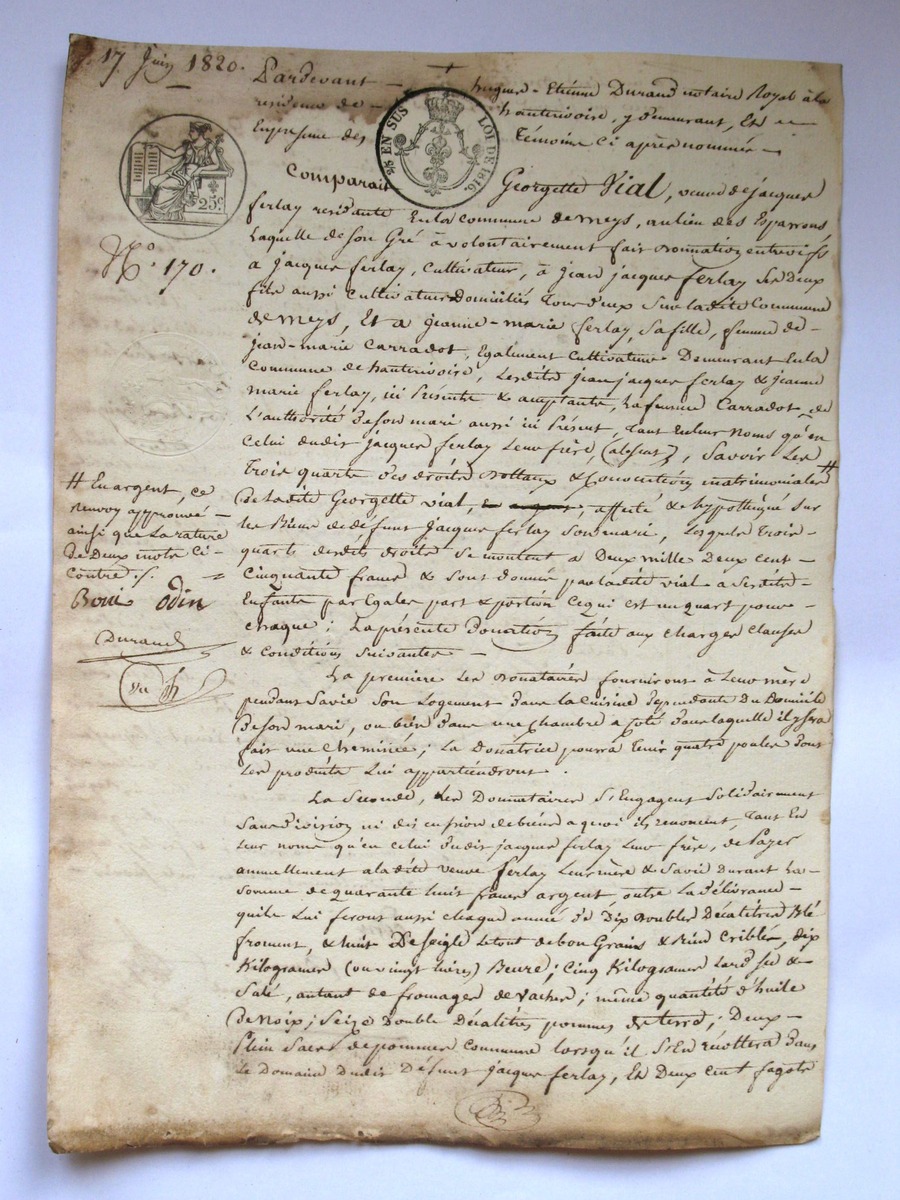 17 Juin 1820.
Pardevant hugues-Etienne Durand notaire Royal à la
residence de hauterivoire, y demeurant, Et en
la presence des Témoins Ci après nommés
25 EN SUS LOI DE 1816.
25c.
Comparait Georgette Vial, veuve de jacques
ferlay residante En la commune de meys, au lieu des Esparrons,
Laquelle de son Gré à volontairement fait Donnation entrevifs
a jacques ferlay, Cultivateur, à jean jacques ferlay ses Deux
fils aussi Cultivateurs Domiciliés Tous deux sur ladite Commune
de meys, Et a jeanne-marie ferlay, sa fille, femme de
jean-marie Carradot, Egalement Cultivateur Demeurant En la
Commune de hauterivoire, Lesdits jean jacques ferlay & jeanne
marie ferlay, ici Présents & acceptants, La femme Carradot de
L'authorité de son mari aussi ici Présent, Tant En leur Noms qu'en
Celui dudit jacques ferlay Leur frère, (absent), Savoir Les
Trois quarts des droits Dottaux & Conventions matrimoniales #
De ladite Georgette vial, affecté & hypothéqué sur
les Biens de défunt jacques ferlay son mari, Lesquels Trois
quarts desdits droits se montent a Deux mille Deux cent
Cinquante francs & sont donnés par ladite vial à sesdits
Enfants par Egales part & portion Ce qui est un quart pour
chaque; La présente Donation faite aux charges clauses
& conditions suivantes
N.o 170.
# En argent, ce
renvoy approuvé
ainsi que La rature
De Deux mots Ci
contre ./.
Odin
Durand
vu
La premiere Les Donataires fourniront à Leur mère
pendant Savie son Logement Dans la Cuisine Dependante du Domicile
De son mari, ou bien dans une chambre a coté dans laquelle il y sera
fait une Cheminée; La Donatrice pourra tenir quatre poules Dont
Les produits Lui appartiendront.
La Seconde, Les Donnataires S'Engagent Solidairement
Sans Division ni discussion de biens a quoi ils renoncent, Tant En
Leur noms qu'en celui dudit jacques ferlay Leur frère, de Payer
annuellement a ladite veuve ferlay Leur mère & Savie Durant La
somme de quarante huit francs argent, outre La Délivrance
qu'ils Lui feront aussi chaque année de Dix Doubles Décalitres Blé
froment, & huit De seigle Le tout de bon Grains & Bien Criblés, dix
Kilogrames (ou vingt livres) Beurre; Cinq Kilogrames Lard sec &
Salé, autant de fromages de Vaches; même quantité d'huile
De Noix; Seize Double Décalitres pommes de terre; Deux
Plein Sacs de pommes Commune lorsqu'il S'En récoltera Dans
Le Domaine Dudit Défunt jacques ferlay, Et Deux cent fagots